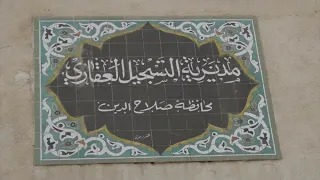 مديرية التسجيل العقاري
محافظة صلاح الدين